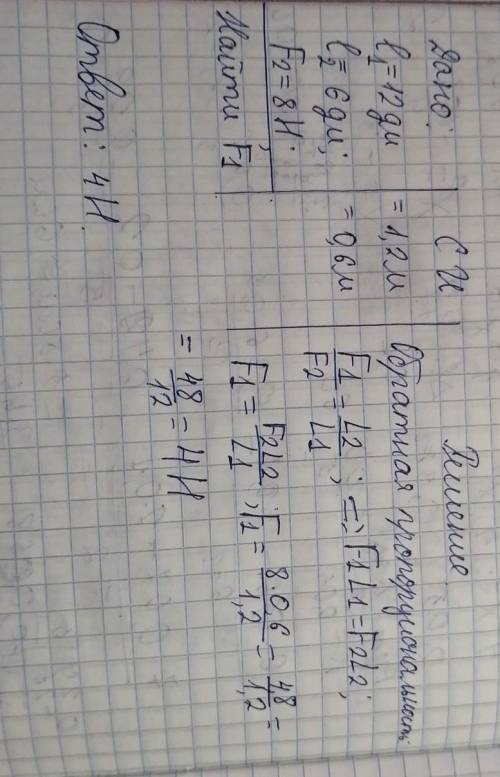 Дано:
l₁=12дм
l₂=6дм;
F₂=8Н;
Найти F₁
СИ
=1,2м
=0,6м
Решение
Обратная пропорциональность:
F1/F2 = L2/L1; => F1L1=F2L2;
F1 = F2L2/L1; F1 = 8·0,6/1,2 = 48/1,2 =
= 48/12 = 4Н
Ответ: 4Н